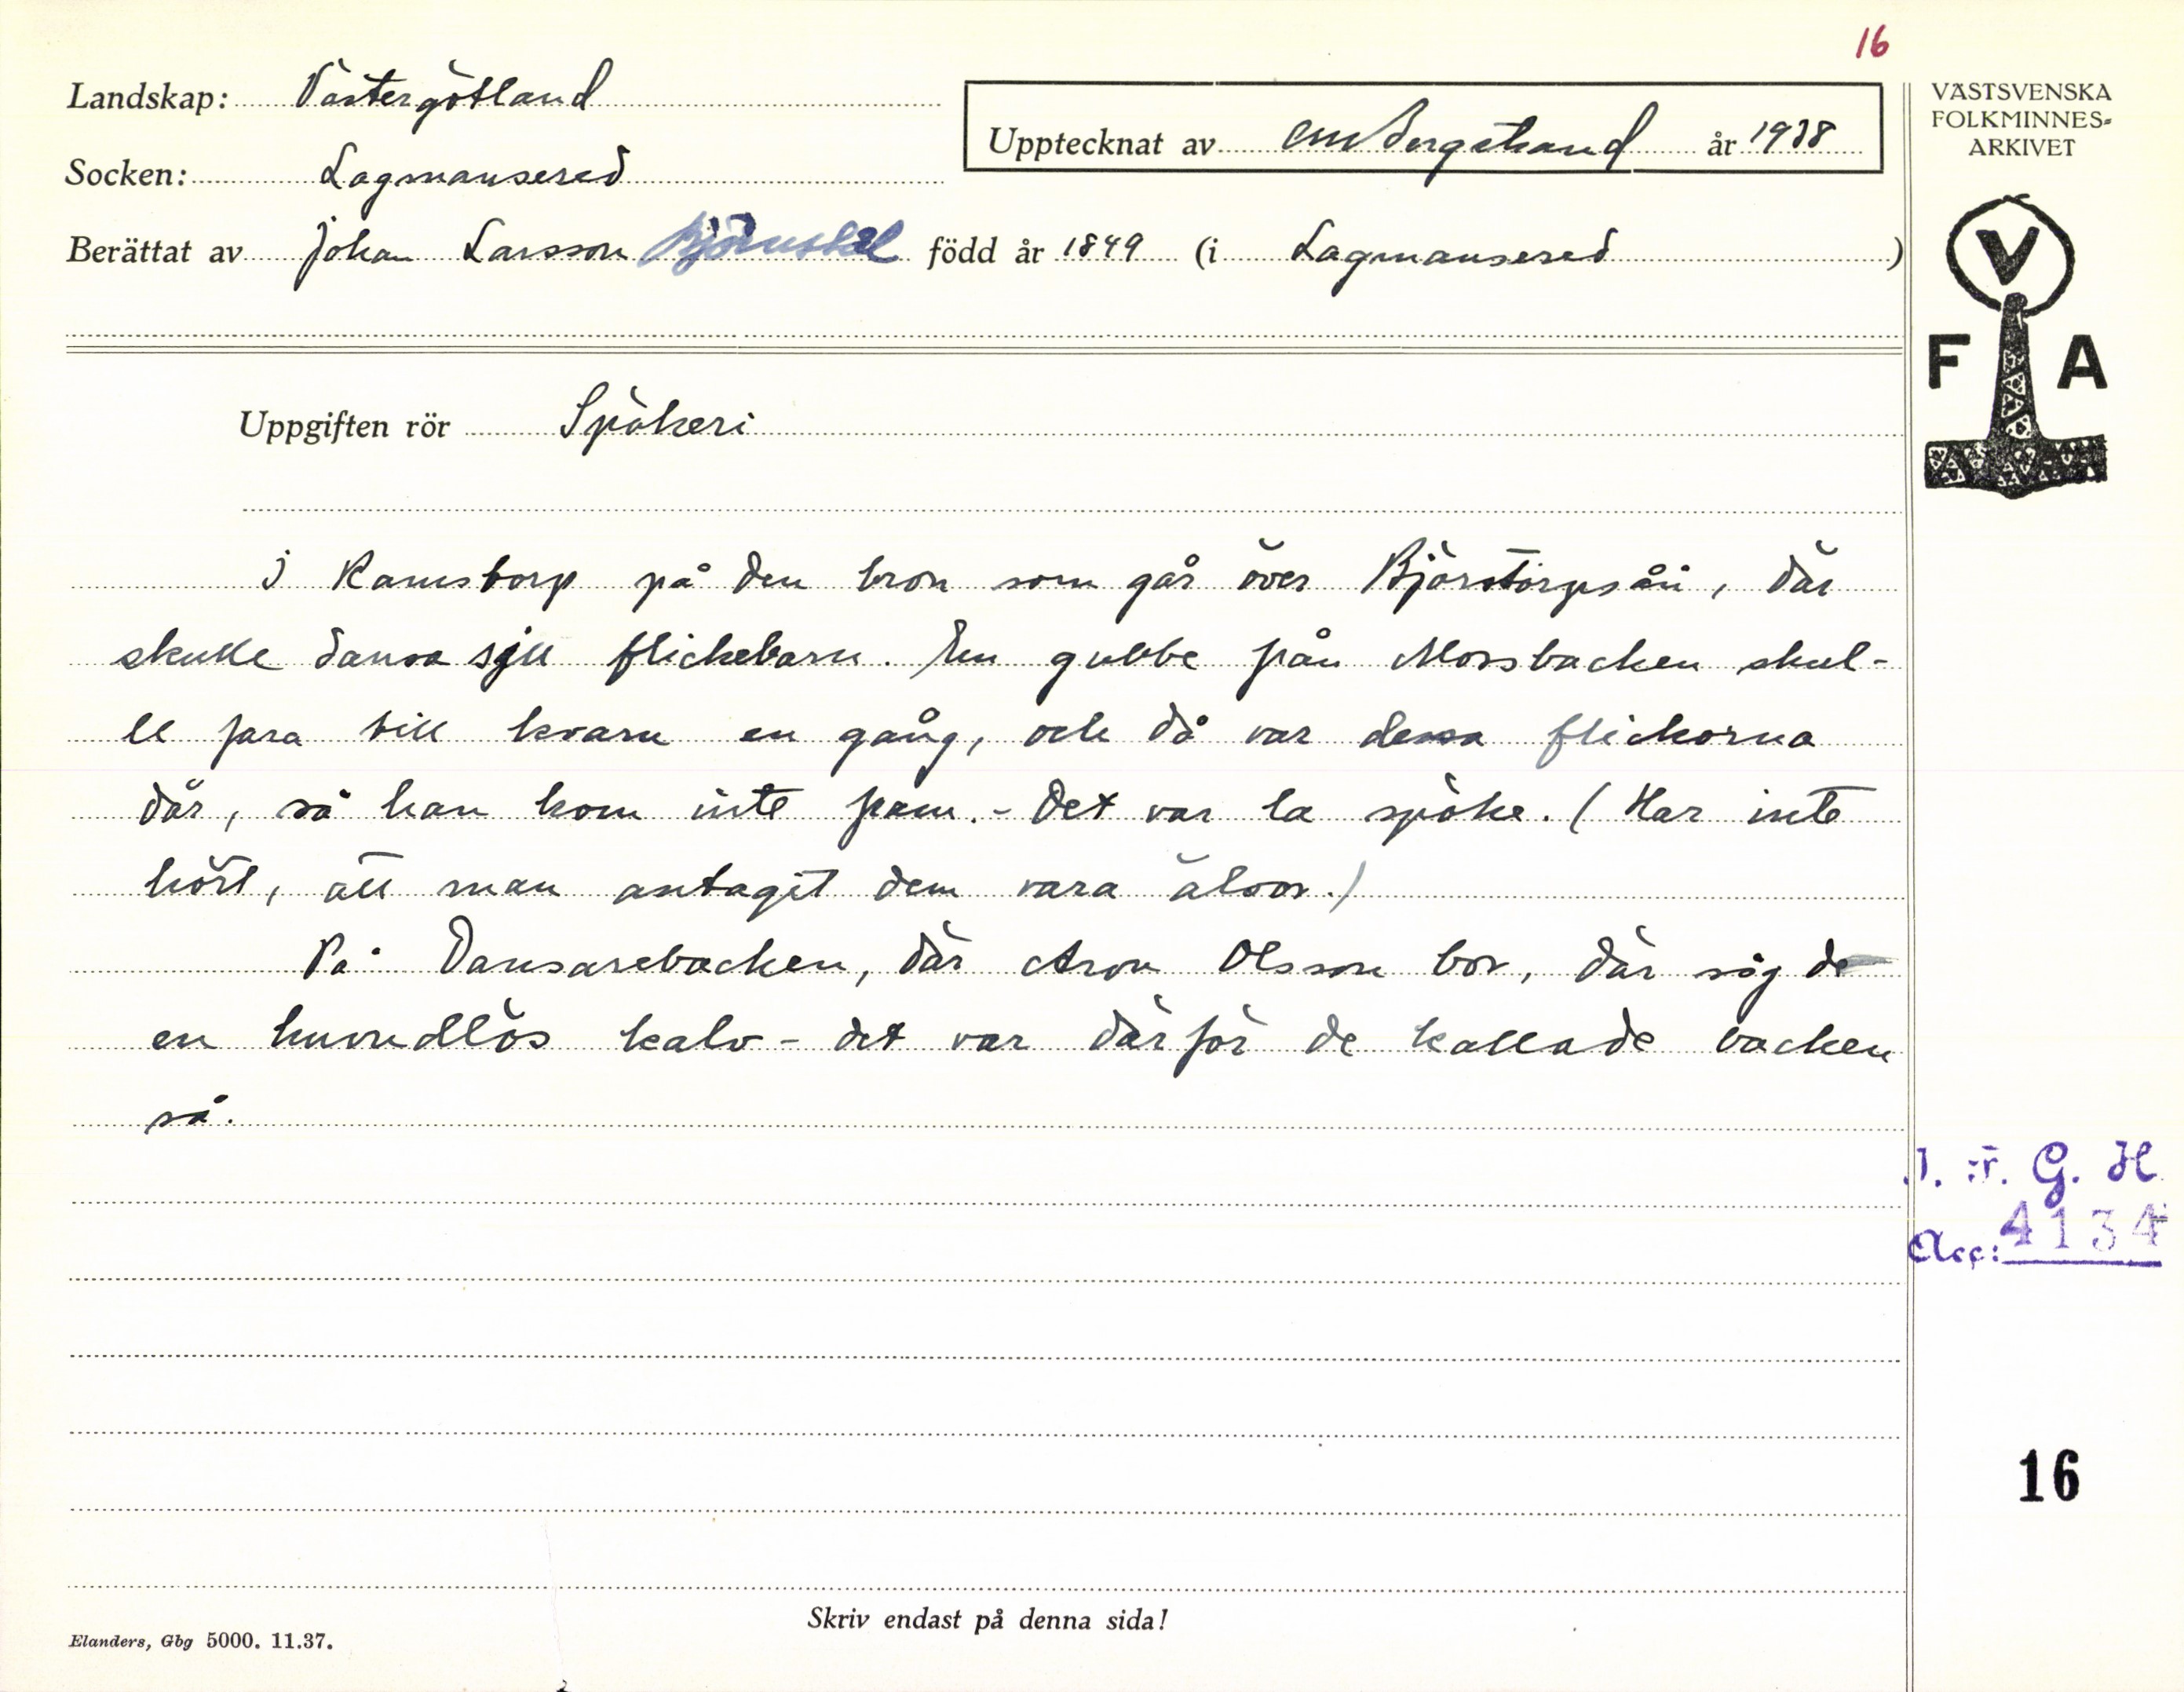 16
Landskap: Västergötland
Upptecknat av CM Bergstrand år 1938
VÄSTSVENSKA
FOLKMINNES-
ARKIVET
Socken: Lagmansered
Berättat av Johan Larsson född år 1849 (i Lagmansered)
V
F A
Uppgiften rör Spökeri
I Ramstorp på den bron som går över Björstorpsån, där
skulle dansa sju flickebarn. En gubbe från Mossbacken skul-
le fara till kvarn en gång, och då var dessa flickorna
där, så han kom inte fram. - Det var la spöke. (Har inte
hört, att man antagit dem vara älvor.)
På Dansarebacken, där Aron Olsson bor, där såg de
en huvudlös kalv - det var därför de kallade backen
så.
I. F. G. H
Acc: 4134
16
Skriv endast på denna sida!
Elanders, Gbg 5000. 11.37.